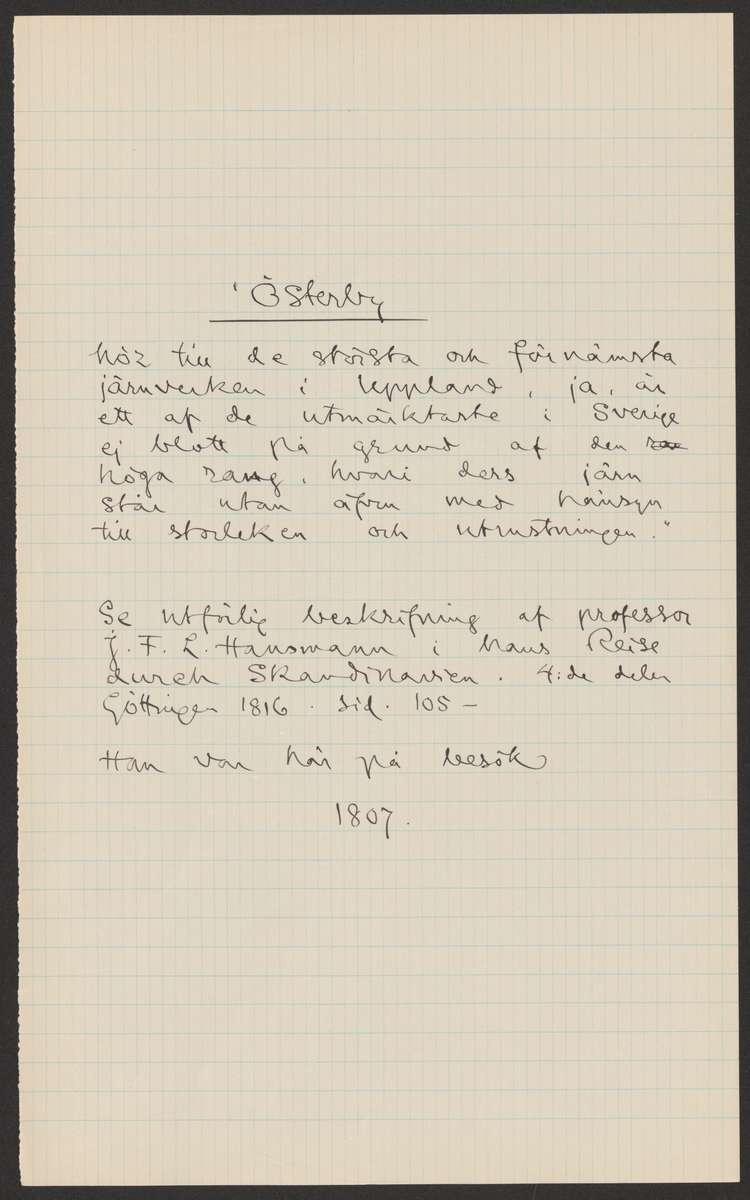 "Österby
hör till de största och förnämsta
järnverken i Uppland, ja, är
ett af de utmärktaste i Sverige
ej blott på grund af den
höga rang, hvari ders järn
står utan äfven med hänsyn
till storleken och utrustningen."
Se utförlig beskrifning af professor
J. F. L. Hausmann i hans Reise
durch Skandinavien. 4:de delen
Göttingen 1816. sid. 105 –
Han var här på besök
1807.